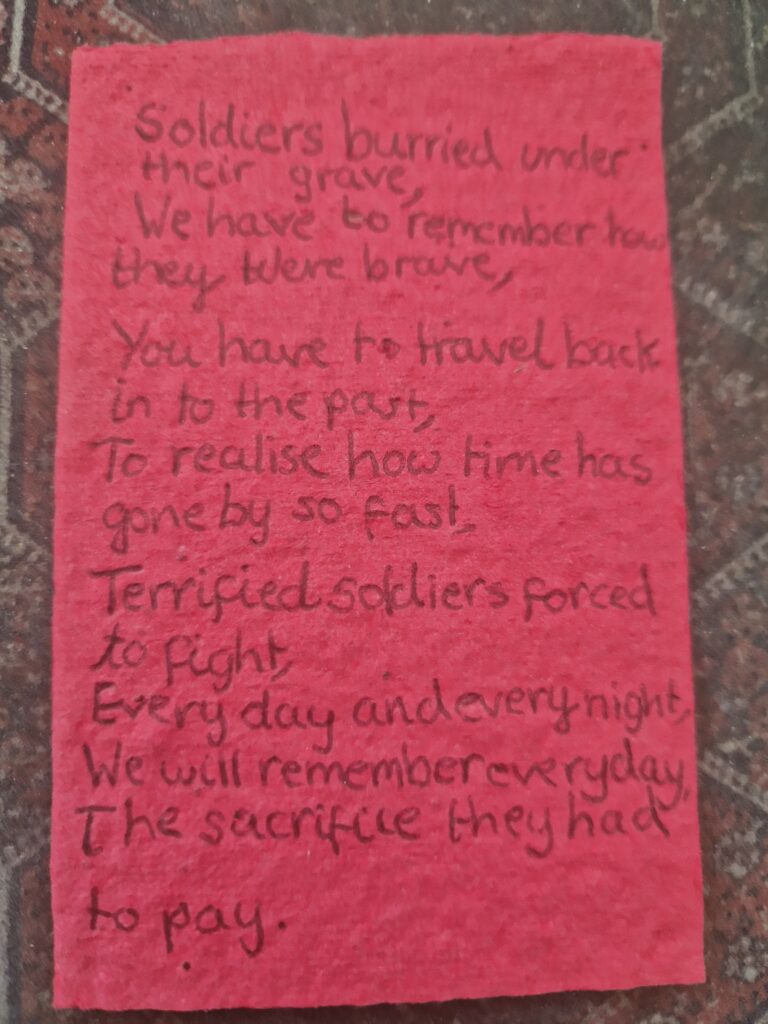 Soldiers burried under
their grave,
We have to remember how
they were brave,
You have to travel back
in to the past,
To realise how time has
gone by so fast,
Terrified soldiers forced
to fight,
Every day and every night,
We will remember everyday,
The sacrifice they had
to pay.